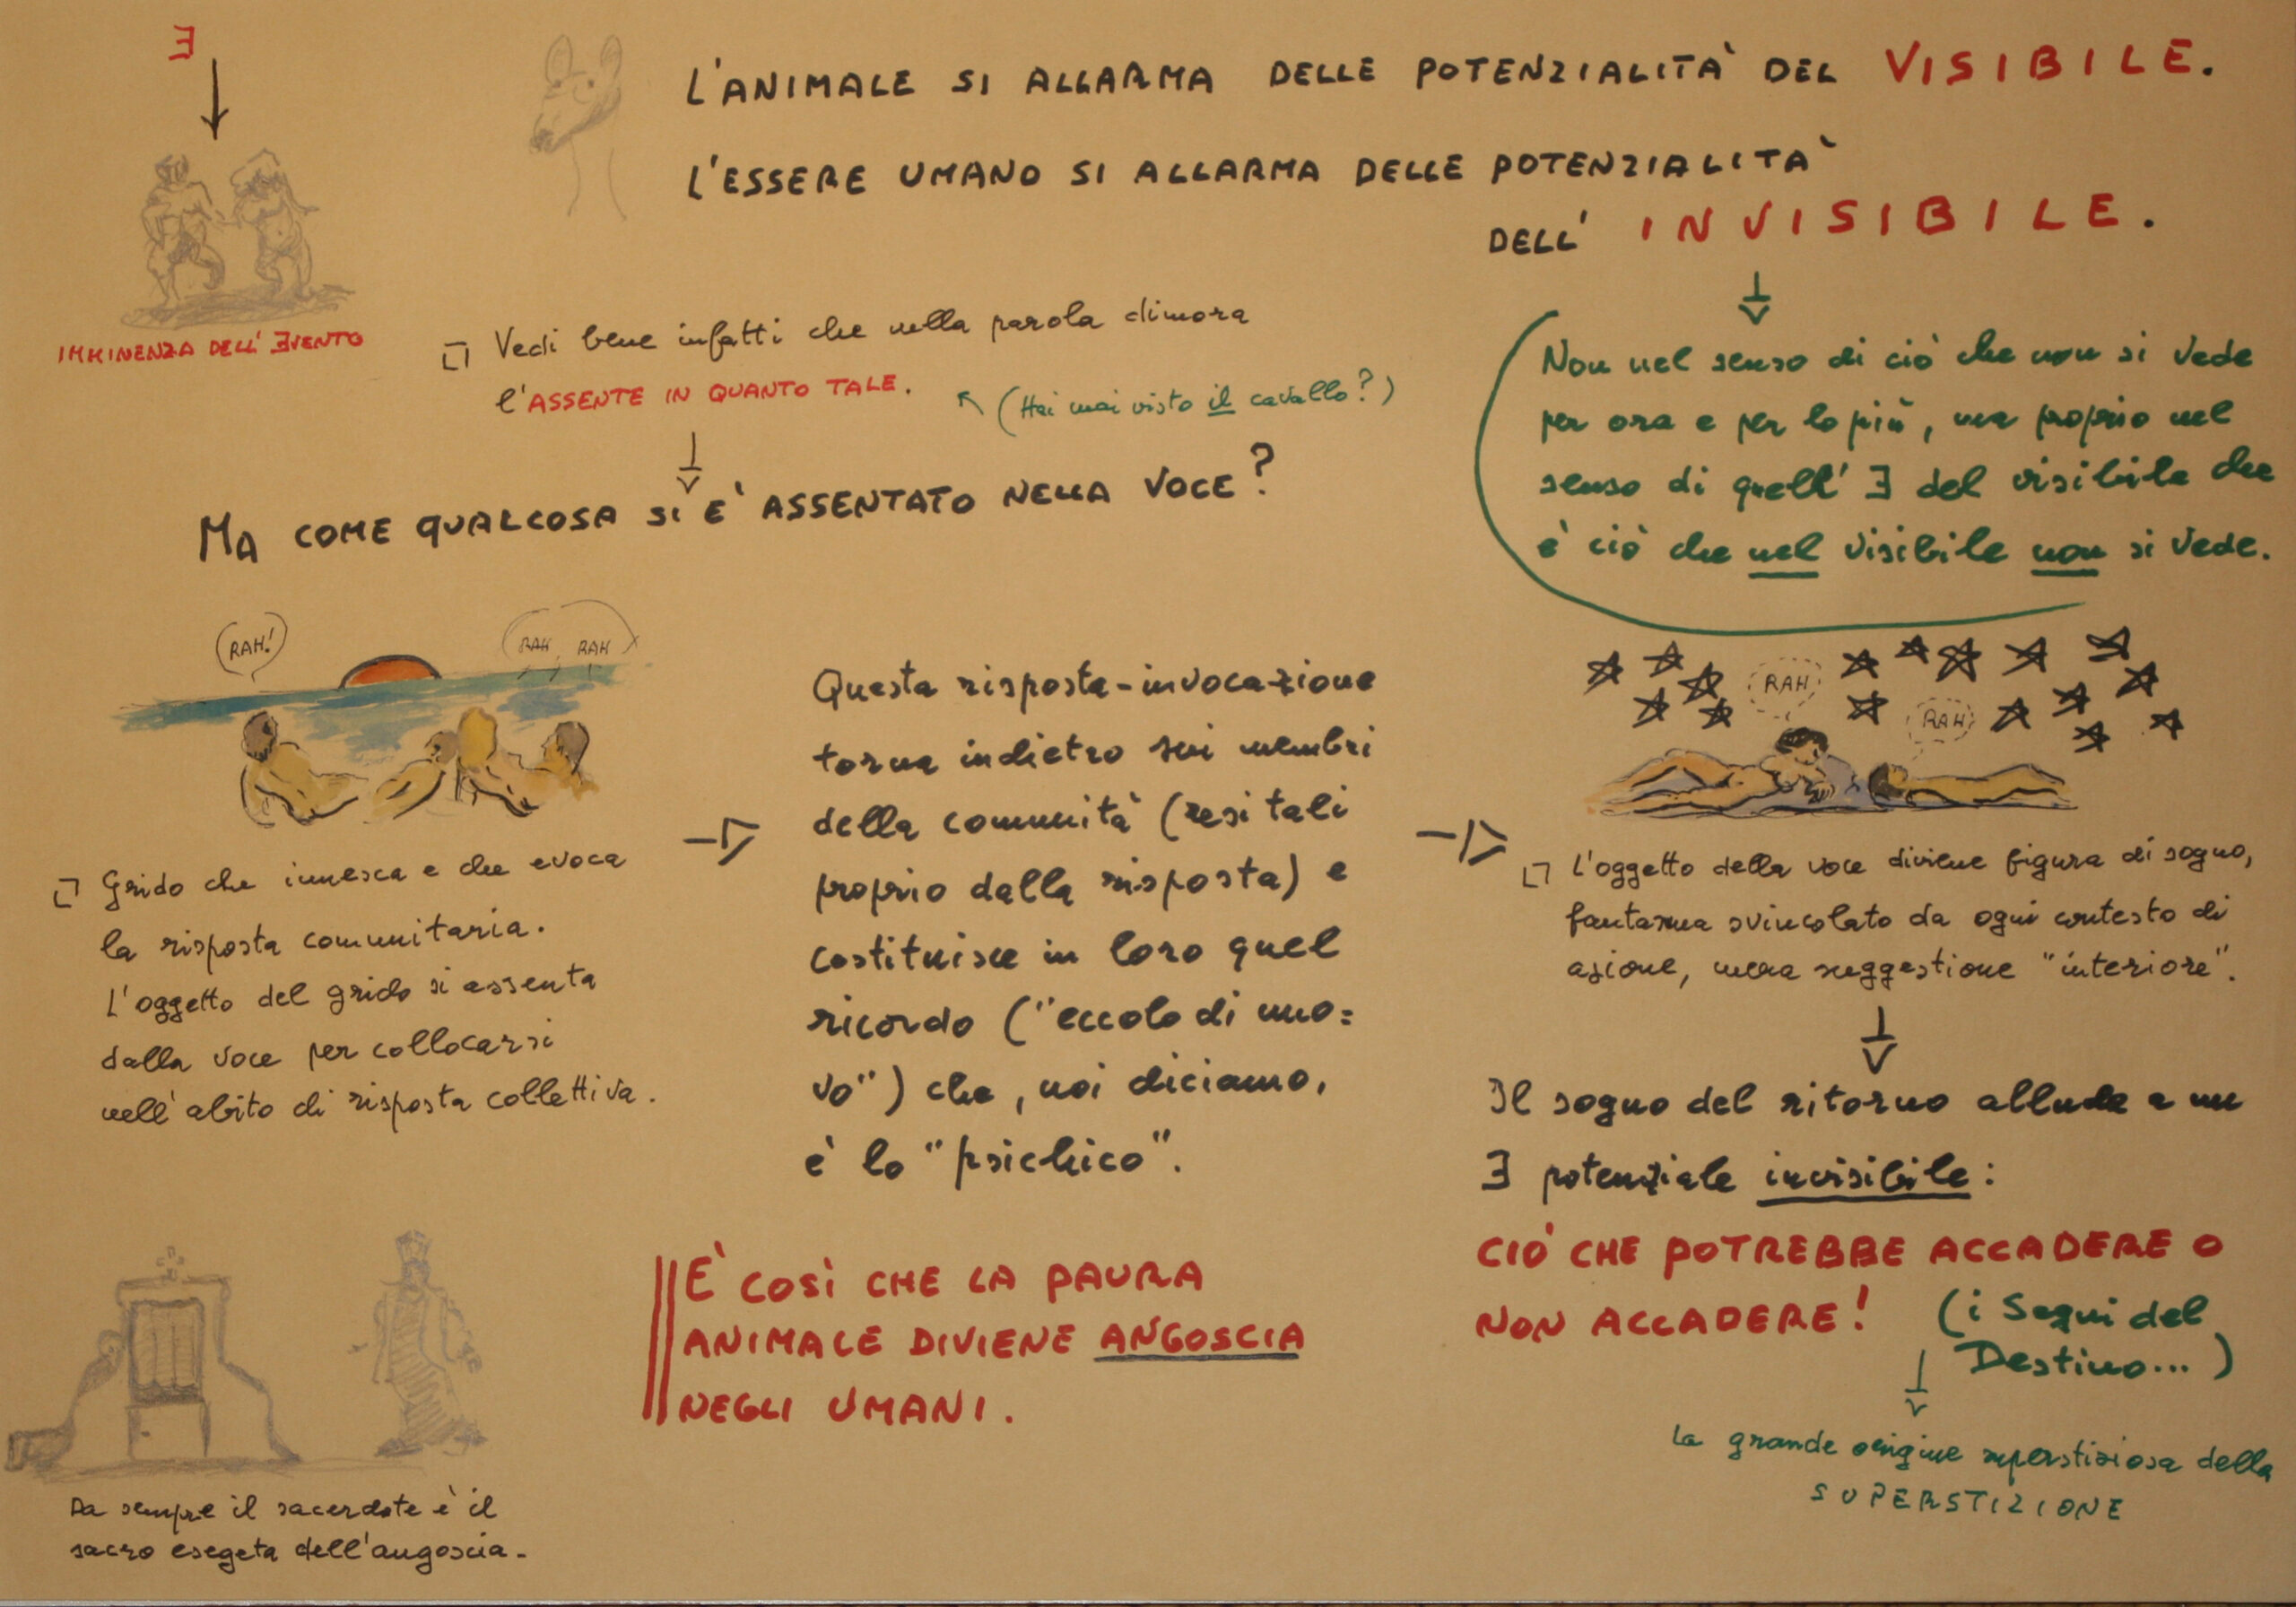 Ǝ
L'ANIMALE SI ALLARMA DELLE POTENZIALITÀ DEL VISIBILE.
L'ESSERE UMANO SI ALLARMA DELLE POTENZIALITÀ
DELL' INVISIBILE.
IMMINENZA DELL' ƎVENTO
Vedi bene infatti che nella parola dimora
l'ASSENTE IN QUANTO TALE.
(Hai mai visto il cavallo?)
Non nel senso di ciò che non si vede
per ora e per lo più, ma proprio nel
senso di quell' Ǝ del visibile che
è ciò che nel visibile non si vede.
MA COME QUALCOSA SI E' ASSENTATO NELLA VOCE?
RAH!
RAH, RAH
Grido che innesca e che evoca
la risposta comunitaria.
L'oggetto del grido si assenta
dalla voce per collocarsi
nell'abito di risposta collettiva.
Questa risposta-invocazione
torna indietro sui membri
della comunità (resi tali
proprio dalla risposta) e
costituisce in loro quel
ricordo ("eccolo di nuo=
vo") che, noi diciamo,
è lo "psichico".
RAH
RAH
L'oggetto della voce diviene figura di sogno,
fantasma svincolato da ogni contesto di
azione, mera suggestione "interiore".
Il sogno del ritorno allude a un
Ǝ potenziale invisibile:
CIÒ CHE POTREBBE ACCADERE O
NON ACCADERE!
(i Segni del
Destino...)
La grande origine superstiziosa della
SUPERSTIZIONE
È COSÌ CHE LA PAURA
ANIMALE DIVIENE ANGOSCIA
NEGLI UMANI.
Da sempre il sacerdote è il
sacro esegeta dell'angoscia.